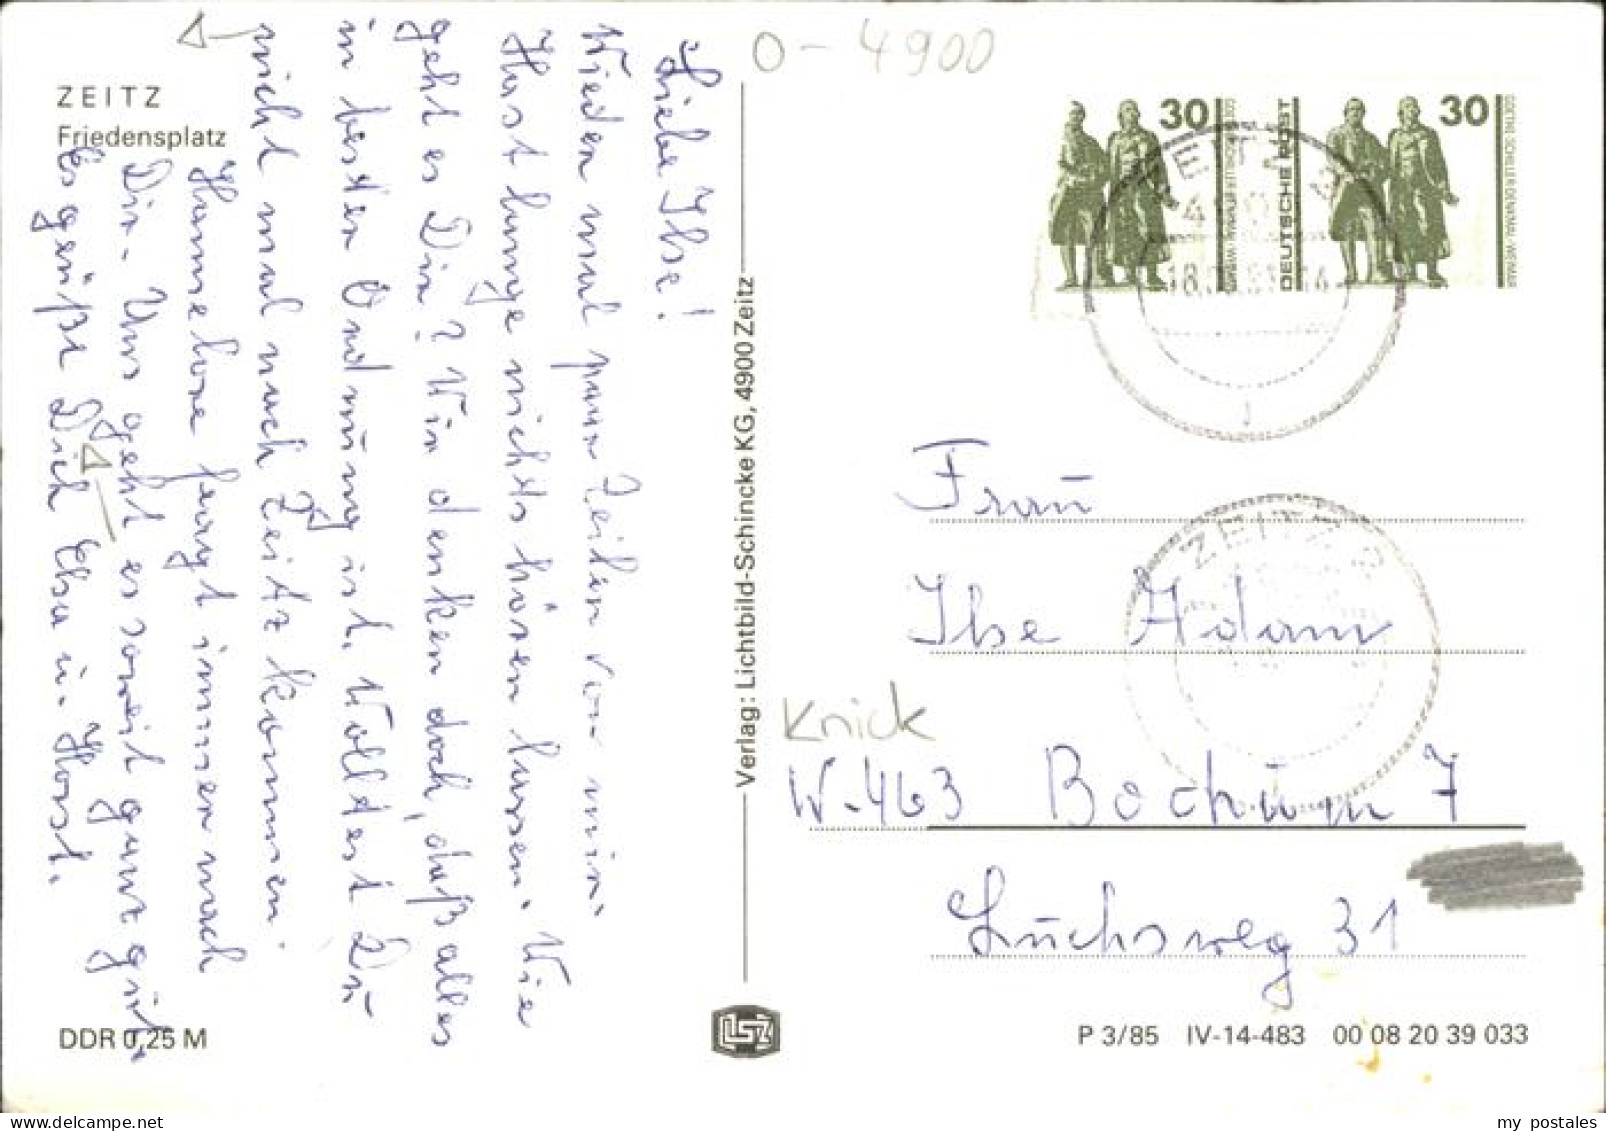 ZEITZ
Friedensplatz
Liebe Ilse!
Wieder mal paar Zeilen von mir.
Hast lange nichts hören lassen. Wie
geht es Dir? Wir denken doch, daß alles
in bester Ordnung ist. Wolltest Du
nicht mal nach Zeitz kommen.
Hannelore fragt immer nach
Dir. Uns geht es soweit ganz gut.
Es grüßt Dich Elsa u. Horst.
DDR 0,25 M
Verlag: Lichtbild-Schincke KG, 4900 Zeitz
LSZ
O-4900
30
GOETHE-SCHILLER-DENKMAL · WEIMAR
DEUTSCHE POST
30
GOETHE-SCHILLER-DENKMAL · WEIMAR
ZEITZ
ZEITZ
Frau
Ilse Adam
Knick
W-463 Bochum 7
Luchsweg 31
P 3/85 IV-14-483 00 08 20 39 033
my postales